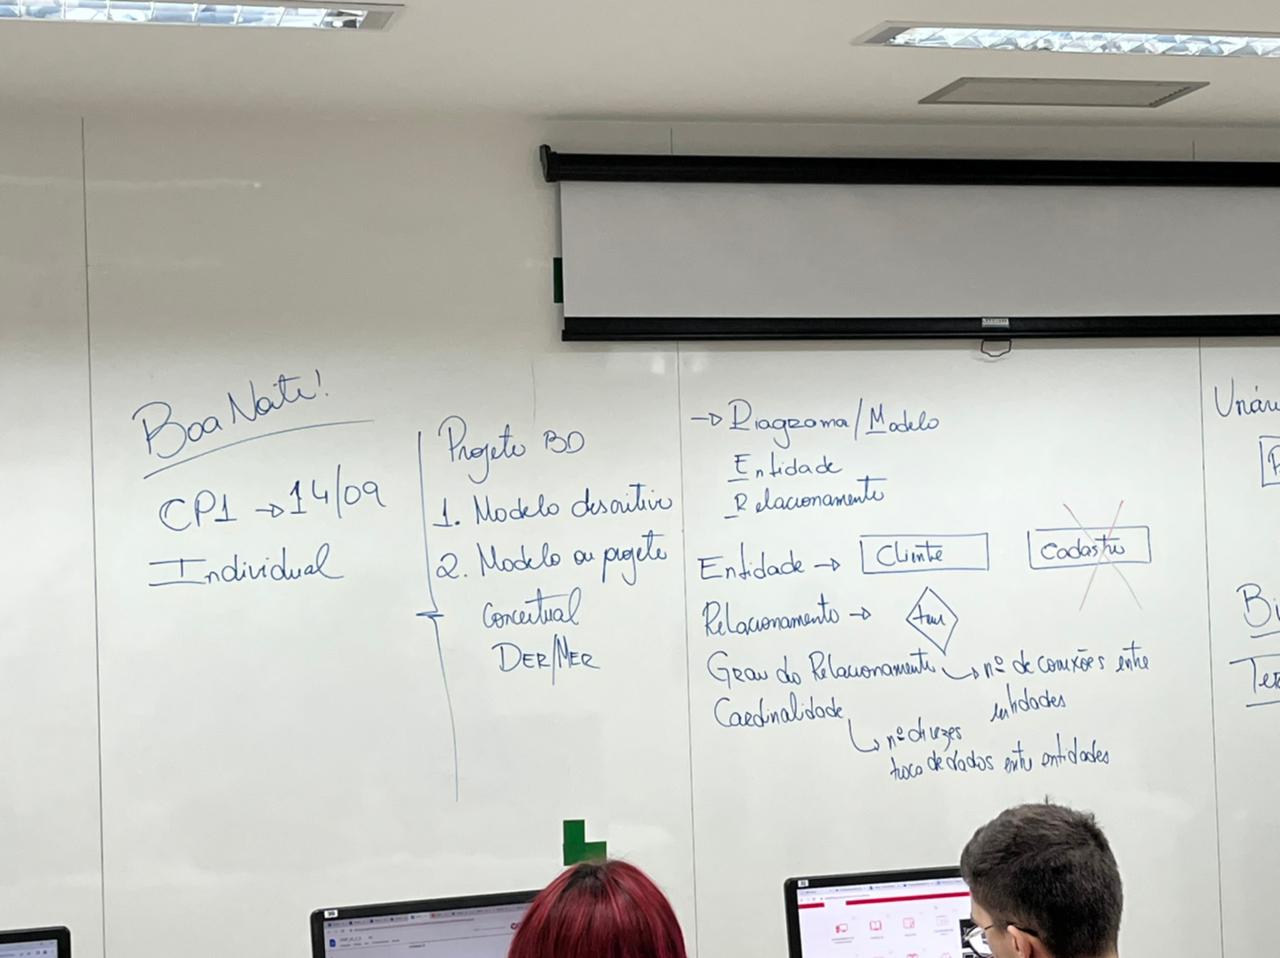 Boa Noite!
CP1 → 14/09
Individual
Projeto BD
1. Modelo descritivo
2. Modelo ou projeto
Conceitual
DER/MER
→ Diagrama/Modelo
Entidade
Relacionamento
Entidade → Cliente Cadastro
Relacionamento → tem
Grau do Relacionamento → nº de conexões entre
entidades
Cardinalidade
→ nº de vezes
troca de dados entre entidades